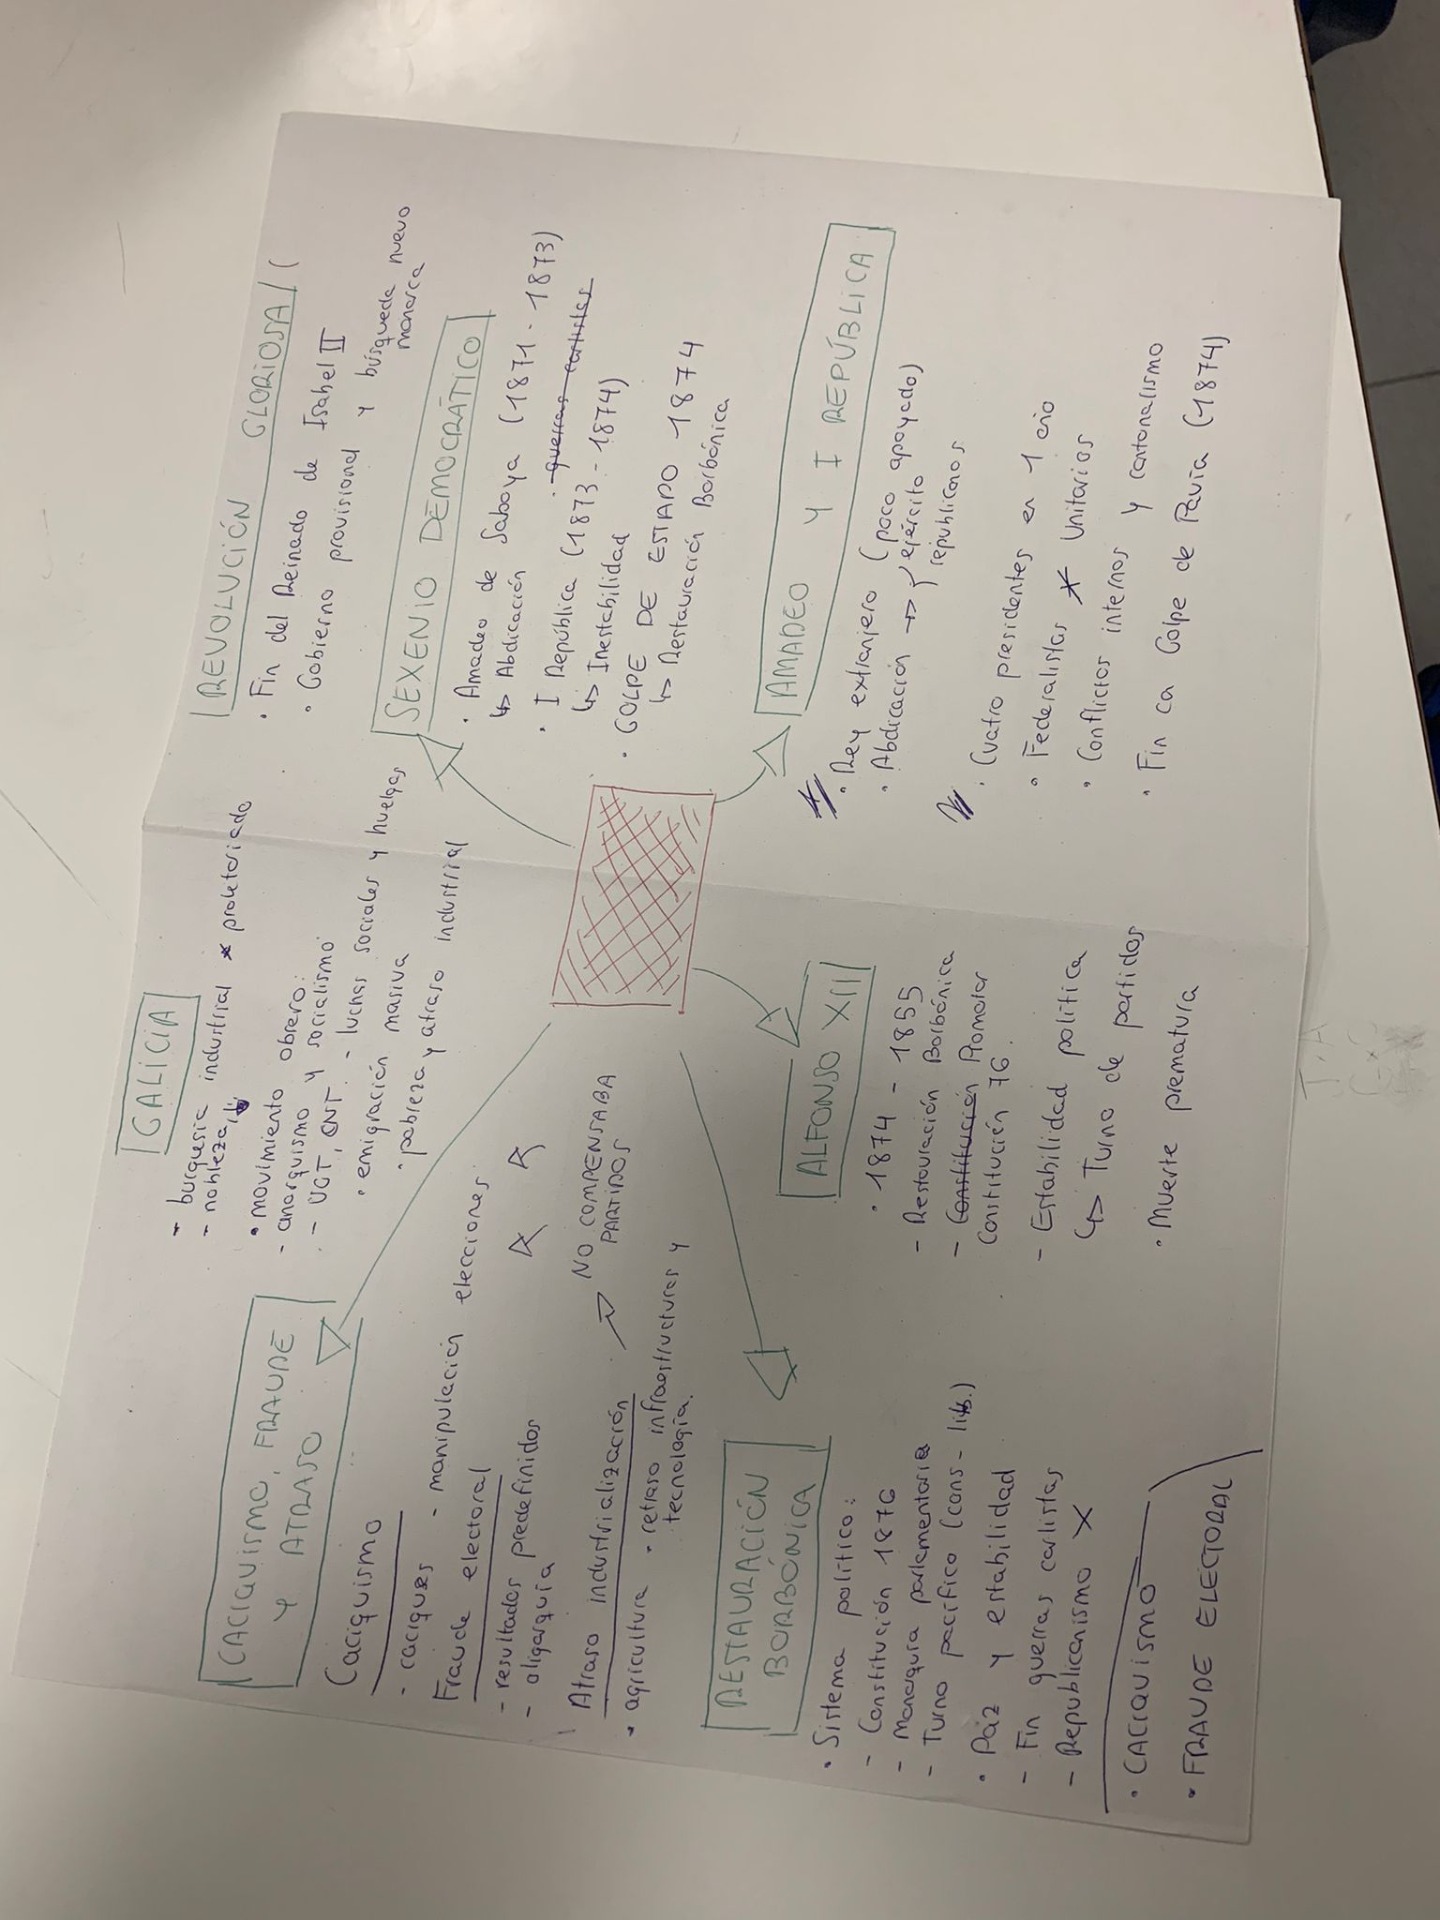 CACIQUISMO, FRAUDE
Y ATRASO
Caciquismo
- caciques - manipulación elecciones
Fraude electoral
- resultados predefinidos
- oligarquía
Atraso industrialización
NO COMPENSABA
PARTIDOS
• agricultura • retraso infraestructuras y
tecnología.
GALICIA
- burguesía industrial * proletariado
- nobleza
• movimiento obrero:
- anarquismo y socialismo
- UGT, CNT. - luchas sociales y huelgas
• emigración masiva
• pobreza y atraso industrial
REVOLUCIÓN GLORIOSA/(
• Fin del Reinado de Isabel II
• Gobierno provisional y búsqueda nuevo
monarca
SEXENIO DEMOCRÁTICO
• Amadeo de Saboya (1871-1873)
↳ Abdicación
• guerras carlistas
• I República (1873-1874)
↳ Inestabilidad
• GOLPE DE ESTADO 1874
↳ Restauración Borbónica
RESTAURACIÓN
BORBÓNICA
• Sistema político:
- Constitución 1876
- Monarquía parlamentaria
- Turno pacífico (cons - lib.)
• Paz y estabilidad
- Fin guerras carlistas
- Republicanismo X
• CACIQUISMO
• FRAUDE ELECTORAL
ALFONSO XII
• 1874 - 1855
- Restauración Borbónica
- Constitución Promotor
Constitución 76.
- Estabilidad política
↳ Turno de partidos
• Muerte prematura
AMADEO Y I REPÚBLICA
• Rey extranjero (poco apoyado)
• Abdicación → { ejército
republicanos
• Cuatro presidentes en 1 año
• Federalistas * Unitarios
• Conflictos internos y cantonalismo
• Fin ca Golpe de Pavía (1874)